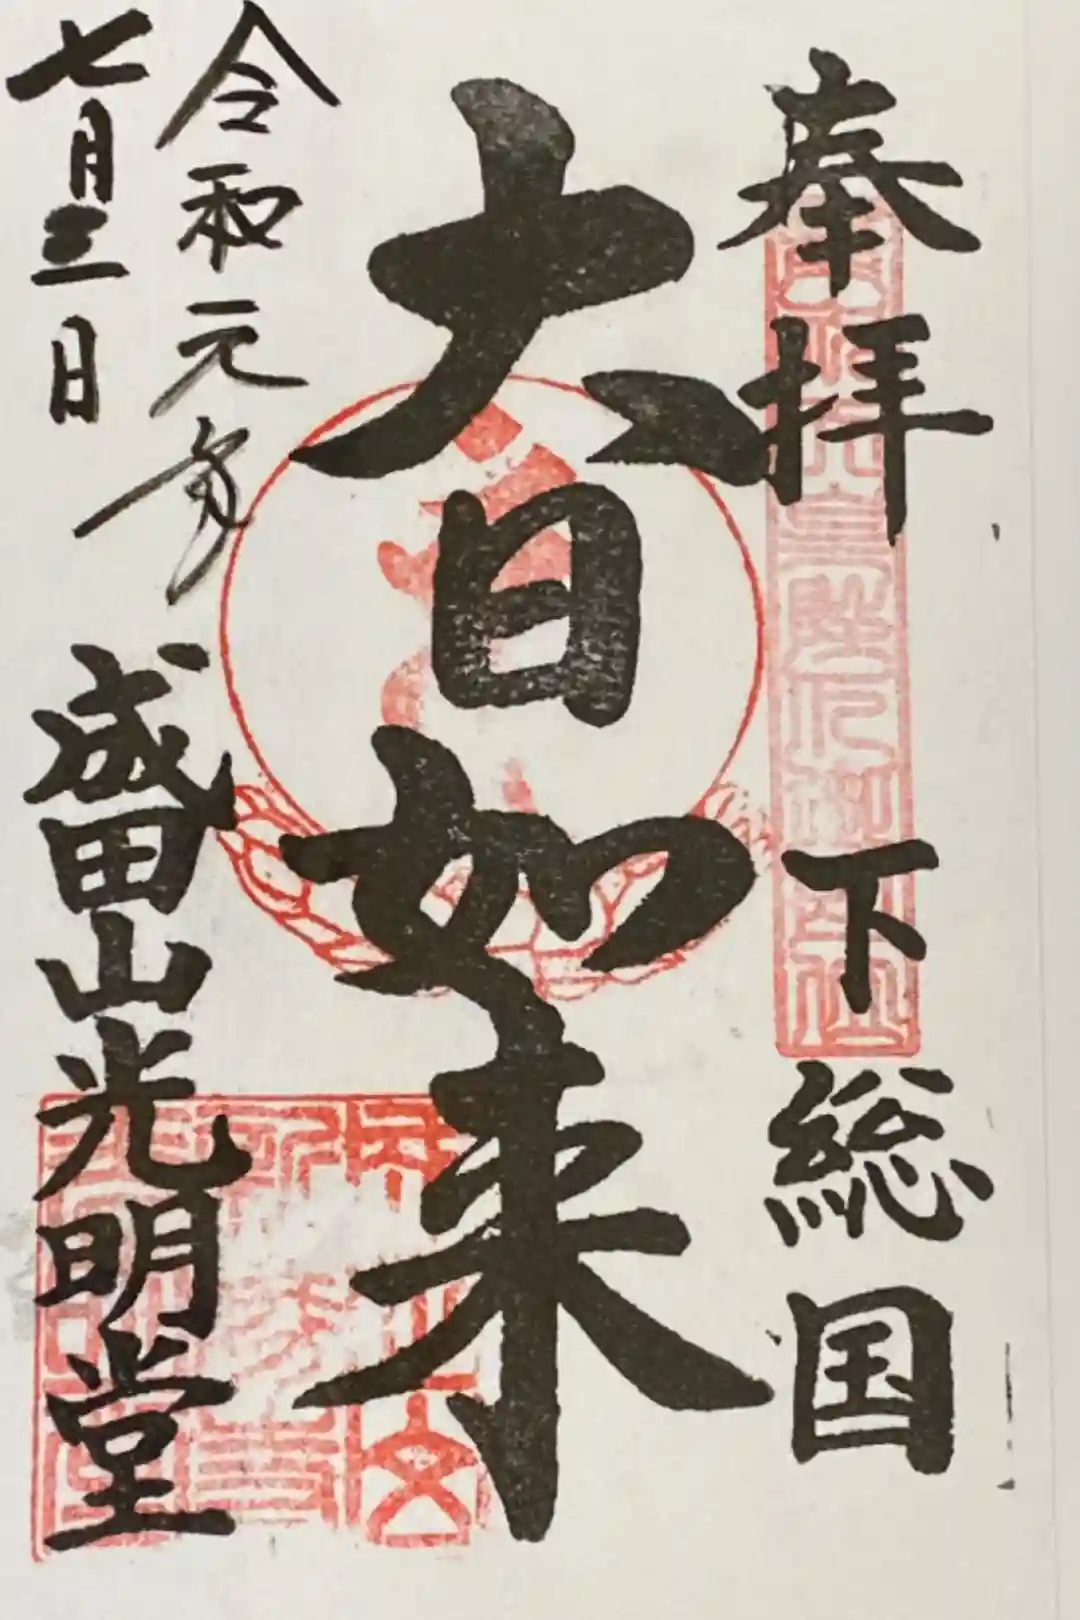 奉拝
下総国
大日如来
令和元年
七月三日
盛田山光明堂